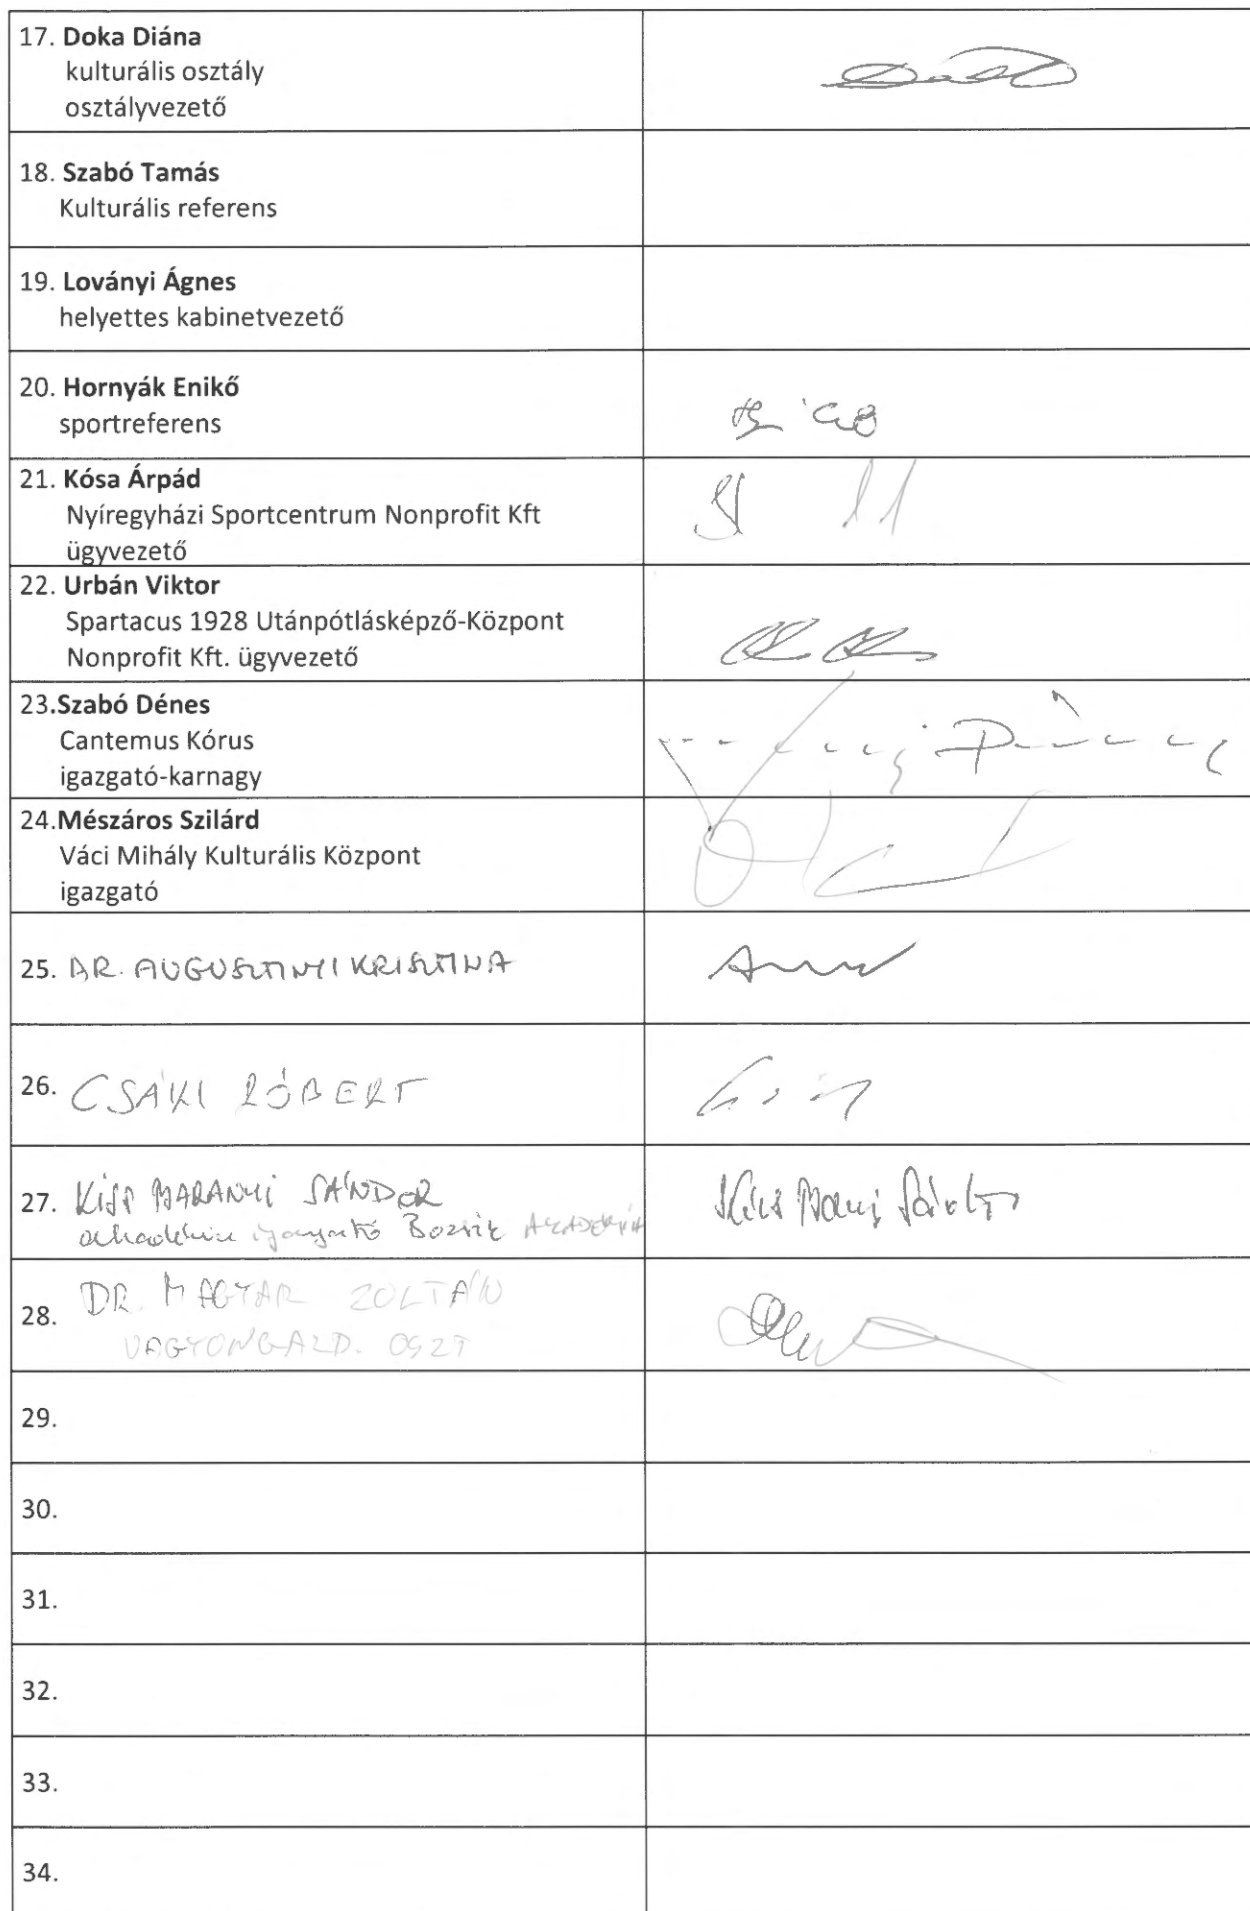 17. Doka Diána
kulturális osztály
osztályvezető
18. Szabó Tamás
Kulturális referens
19. Loványi Ágnes
helyettes kabinetvezető
20. Hornyák Enikő
sportreferens
21. Kósa Árpád
Nyíregyházi Sportcentrum Nonprofit Kft
ügyvezető
22. Urbán Viktor
Spartacus 1928 Utánpótlásképző-Központ
Nonprofit Kft. ügyvezető
23.Szabó Dénes
Cantemus Kórus
igazgató-karnagy
24.Mészáros Szilárd
Váci Mihály Kulturális Központ
igazgató
25. DR. AUGUSZTINYI KRISZTINA
26. CSÁKI RÓBERT
27. KISS MARANYI SÁNDOR
akadémia igazgató Bozsik AKADÉMIA
28. DR. MAGYAR ZOLTÁN
VAGYONGAZD. OSZT
29.
30.
31.
32.
33.
34.